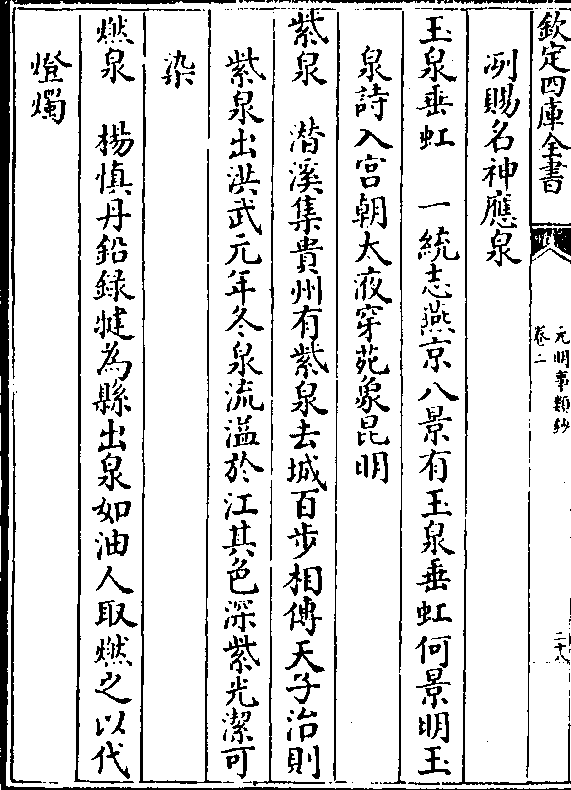 欽定四庫全書
元明事類鈔
卷二
二十八
冽賜名神應泉
玉泉垂虹　一統志燕京八景有玉泉垂虹何景明玉
泉詩入宫朝太液穿苑象昆明
紫泉　潛溪集貴州有紫泉去城百步相傳天子治則
紫泉出洪武元年冬泉流溢於江其色深紫光潔可
染
燃泉　楊慎丹鉛録犍為縣出泉如油人取燃之以代
燈燭